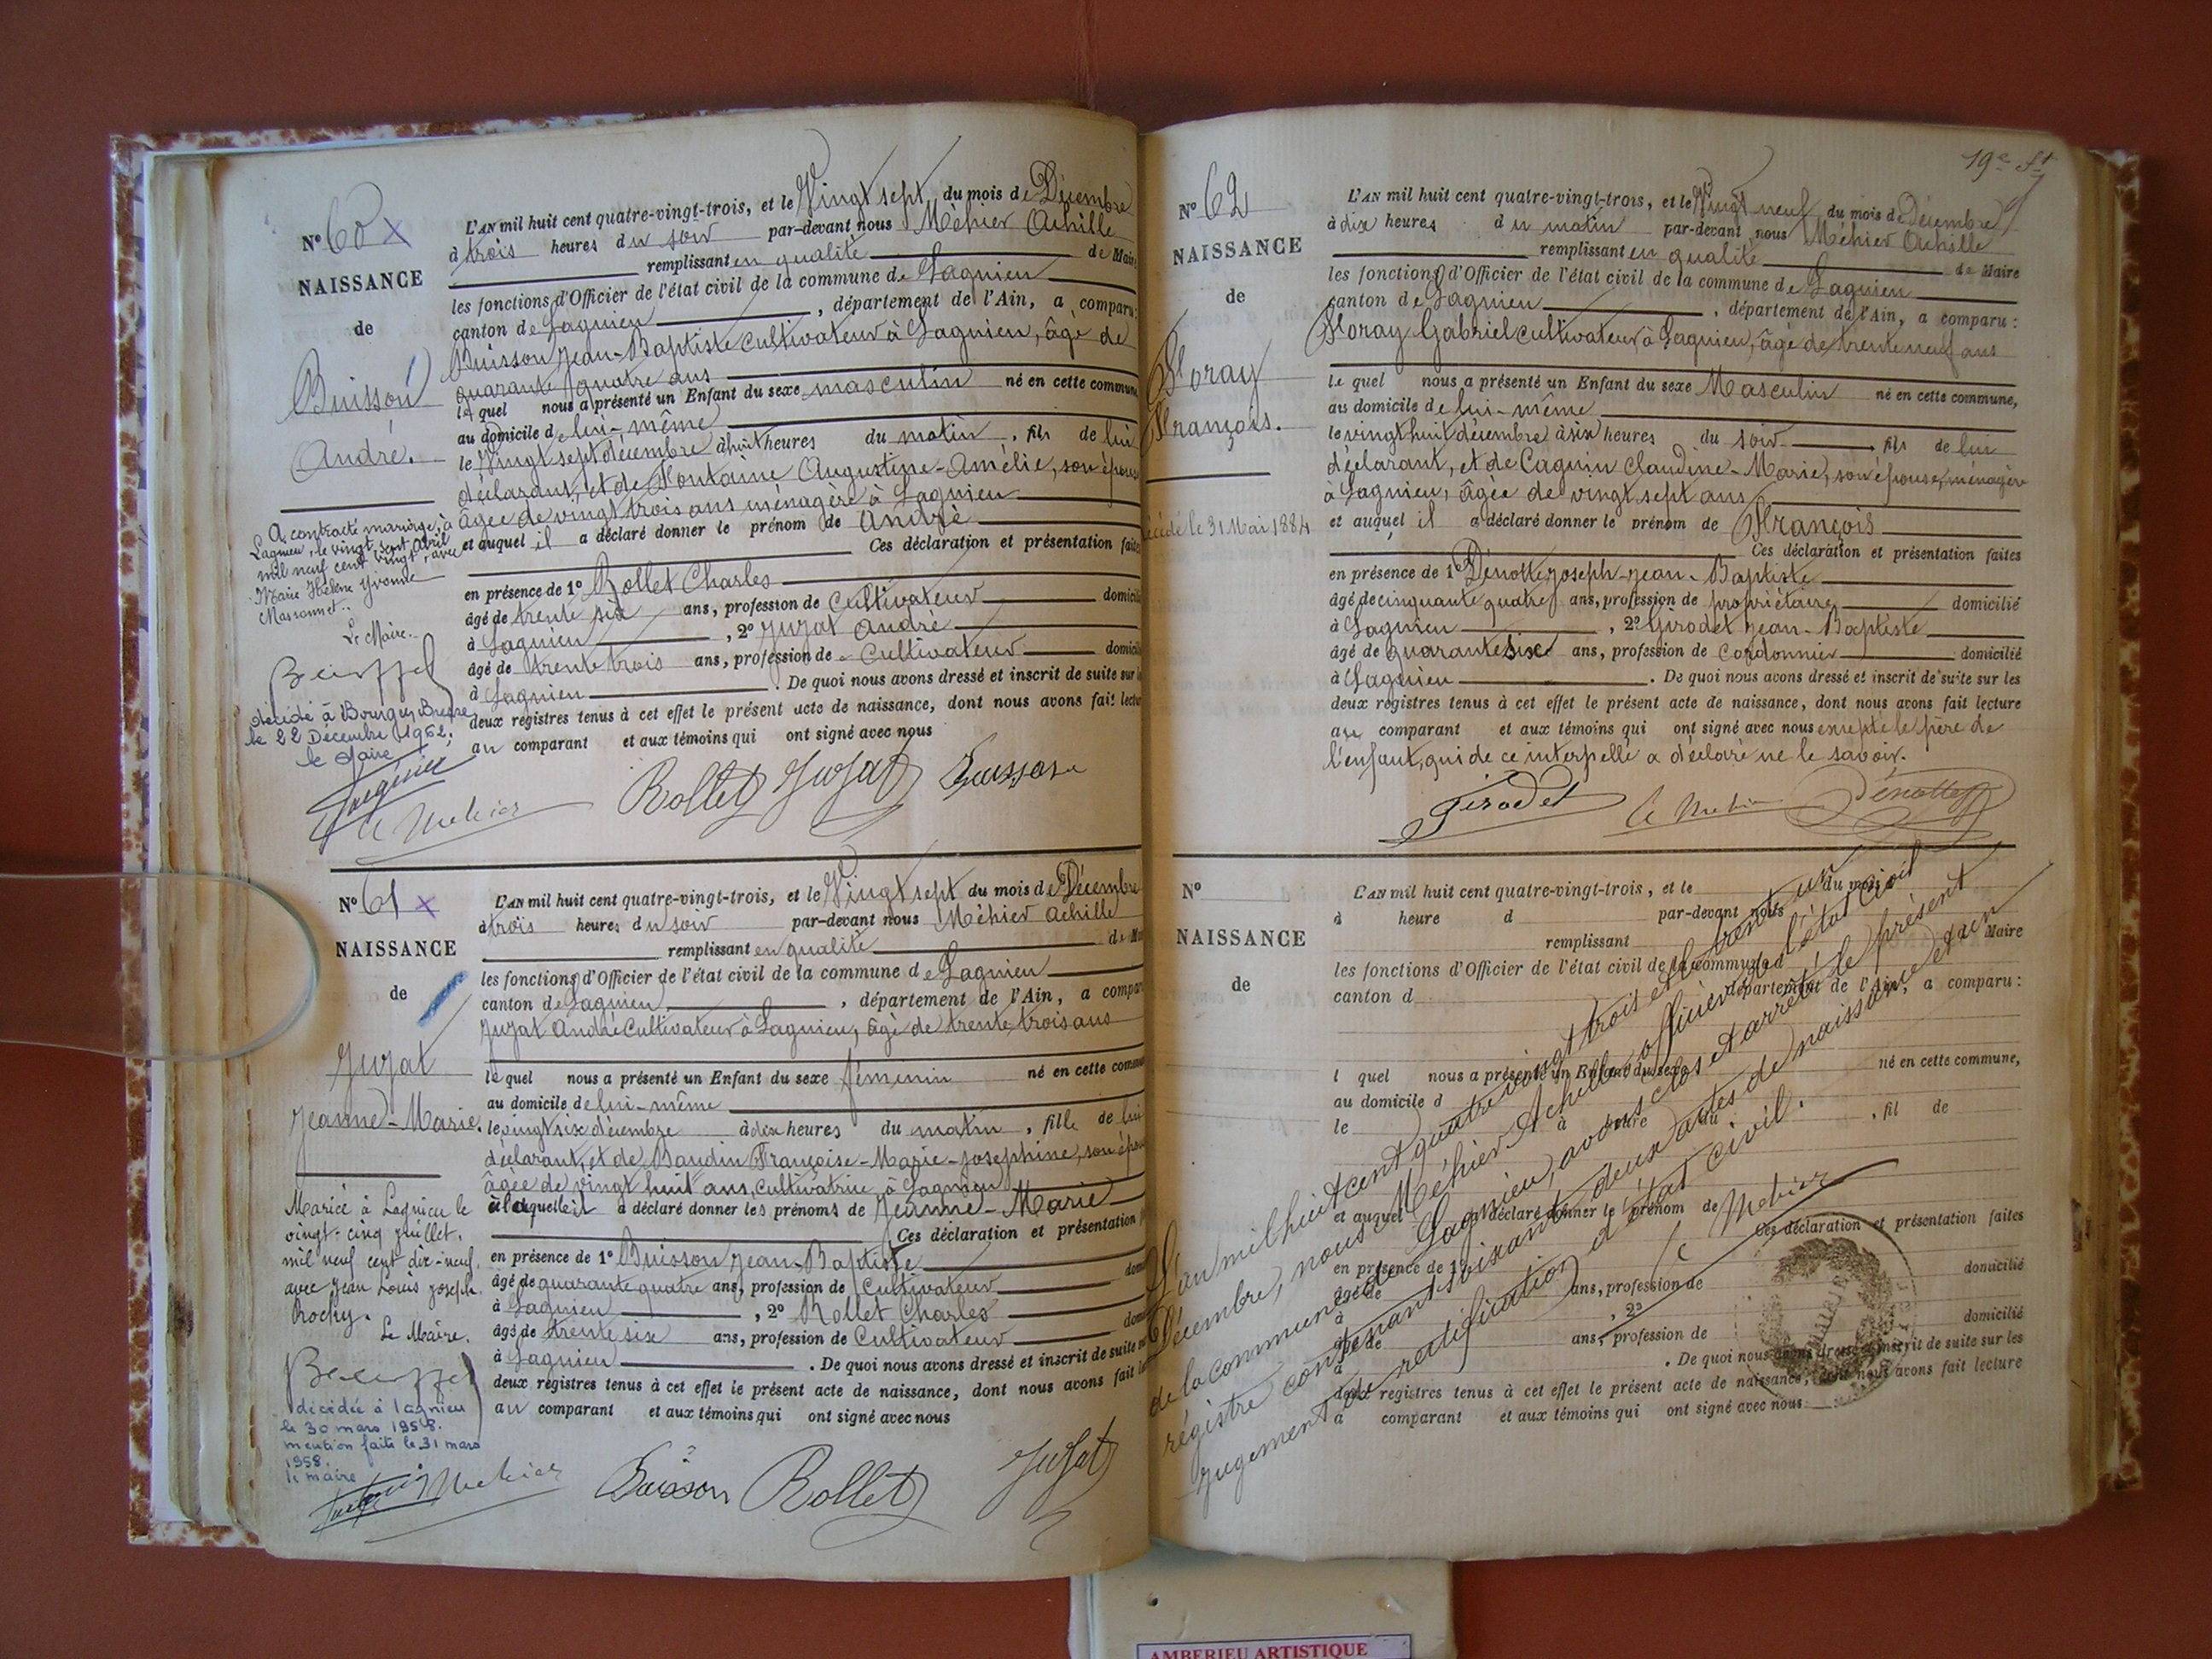 N° 60 X
NAISSANCE
de
Buisson
André.
A contracté mariage, à
Lagnieu, le vingt sept Avril
mil neuf cent vingt, avec
Marie Hélène Yvonne
Massonnet.
Le Maire.
décédé à Bourg en Bresse
le 22 Décembre 1962.
le Maire
L'AN mil huit cent quatre-vingt-trois, et le Vingt sept du mois de Décembre
à trois heures du soir par-devant nous Méhier Achille
remplissant en qualité de Maire
les fonctions d'Officier de l'état civil de la commune de Lagnieu
canton de Lagnieu, département de l'Ain, a comparu:
Buisson Jean-Baptiste cultivateur à Lagnieu, âgé de
quarante quatre ans
le quel nous a présenté un Enfant du sexe masculin né en cette commune
au domicile de lui-même
le Vingt sept décembre à huit heures du matin, fils de lui
déclarant, et de Fontaine Augustine-Amélie, son épouse
âgée de vingt trois ans ménagère à Lagnieu
et auquel il a déclaré donner le prénom de André
Ces déclaration et présentation faites
en présence de 1° Rollet Charles
âgé de trente six ans, profession de Cultivateur domicilié
à Lagnieu, 2° Juzat André
âgé de trente trois ans, profession de Cultivateur domicilié
à Lagnieu. De quoi nous avons dressé et inscrit de suite sur les
deux registres tenus à cet effet le présent acte de naissance, dont nous avons fait lecture
au comparant et aux témoins qui ont signé avec nous
A Mehier Rollet Juzat Buisson
N° 61 X
NAISSANCE
de
Juzat
Jeanne-Marie.
Mariée à Lagnieu le
vingt-cinq juillet,
mil neuf cent dix-neuf,
avec Jean Louis Joseph
Rochy.
Le Maire.
décédée à Lagnieu
le 30 mars 1958.
mention faite le 31 mars
1958.
le maire
L'AN mil huit cent quatre-vingt-trois, et le Vingt sept du mois de Décembre
à trois heures du soir par-devant nous Méhier Achille
remplissant en qualité de Maire
les fonctions d'Officier de l'état civil de la commune de Lagnieu
canton de Lagnieu, département de l'Ain, a comparu
Juzat André Cultivateur à Lagnieu, âgé de trente trois ans
le quel nous a présenté un Enfant du sexe féminin né en cette commune
au domicile de lui-même
le vingt six décembre à dix heures du matin, fille de lui
déclarant, et de Baudin Françoise-Marie-Joséphine, son épouse
âgée de vingt huit ans, cultivatrice à Lagnieu
à laquelle il a déclaré donner les prénoms de Jeanne-Marie
Ces déclaration et présentation
en présence de 1° Buisson Jean-Baptiste
âgé de quarante quatre ans, profession de Cultivateur
à Lagnieu, 2° Rollet Charles
âgé de trente six ans, profession de Cultivateur
à Lagnieu. De quoi nous avons dressé et inscrit de suite
deux registres tenus à cet effet le présent acte de naissance, dont nous avons fait
au comparant et aux témoins qui ont signé avec nous
Mehier Buisson Rollet Juzat
19e ft
N° 62
NAISSANCE
de
Floray
François.
décédé le 31 Mai 1884
L'AN mil huit cent quatre-vingt-trois, et le Vingt neuf du mois de décembre
à dix heures du matin par-devant nous Méhier Achille
remplissant en qualité de Maire
les fonctions d'Officier de l'état civil de la commune de Lagnieu
canton de Lagnieu, département de l'Ain, a comparu:
Floray Gabriel cultivateur à Lagnieu, âgé de trente neuf ans
le quel nous a présenté un Enfant du sexe Masculin né en cette commune,
au domicile de lui-même
le vingt huit décembre à six heures du soir fils de lui
déclarant, et de Caguin Claudine-Marie, son épouse, ménagère
à Lagnieu, âgée de vingt sept ans
et auquel il a déclaré donner le prénom de François
Ces déclaration et présentation faites
en présence de 1° Dénotte Joseph-Jean-Baptiste
âgé de cinquante quatre ans, profession de propriétaire domicilié
à Lagnieu, 2° Girodet Jean-Baptiste
âgé de quarante six ans, profession de Cordonnier domicilié
à Lagnieu. De quoi nous avons dressé et inscrit de suite sur les
deux registres tenus à cet effet le présent acte de naissance, dont nous avons fait lecture
au comparant et aux témoins qui ont signé avec nous excepté le père de
l'enfant, qui de ce interpellé a déclaré ne le savoir.
Girodet A Mehier Dénotte
N°
NAISSANCE
de
L'AN mil huit cent quatre-vingt-trois, et le du mois
à heure d par-devant nous
remplissant Maire
les fonctions d'Officier de l'état civil de la commune d
canton d département de l'Ain, a comparu:
l quel nous a présenté un Enfant du sexe né en cette commune,
au domicile d
le à heure du, fil de
et auquel a déclaré donner le prénom de
Ces déclaration et présentation faites
en présence de 1°
âgé de ans, profession de domicilié
à, 2°
âgé de ans, profession de domicilié
à. De quoi nous avons dressé et inscrit de suite sur les
deux registres tenus à cet effet le présent acte de naissance, dont nous avons fait lecture
a comparant et aux témoins qui ont signé avec nous
L'an mil huit cent quatre vingt trois et le trente un
Décembre, nous Méhier Achille officier de l'état civil
de la commune de Lagnieu, avons clos et arrêté le présent
régistre contenant soixante deux actes de naissance et un
jugement de rectification d'état civil.
A Mehier
AMBERIEU ARTISTIQUE